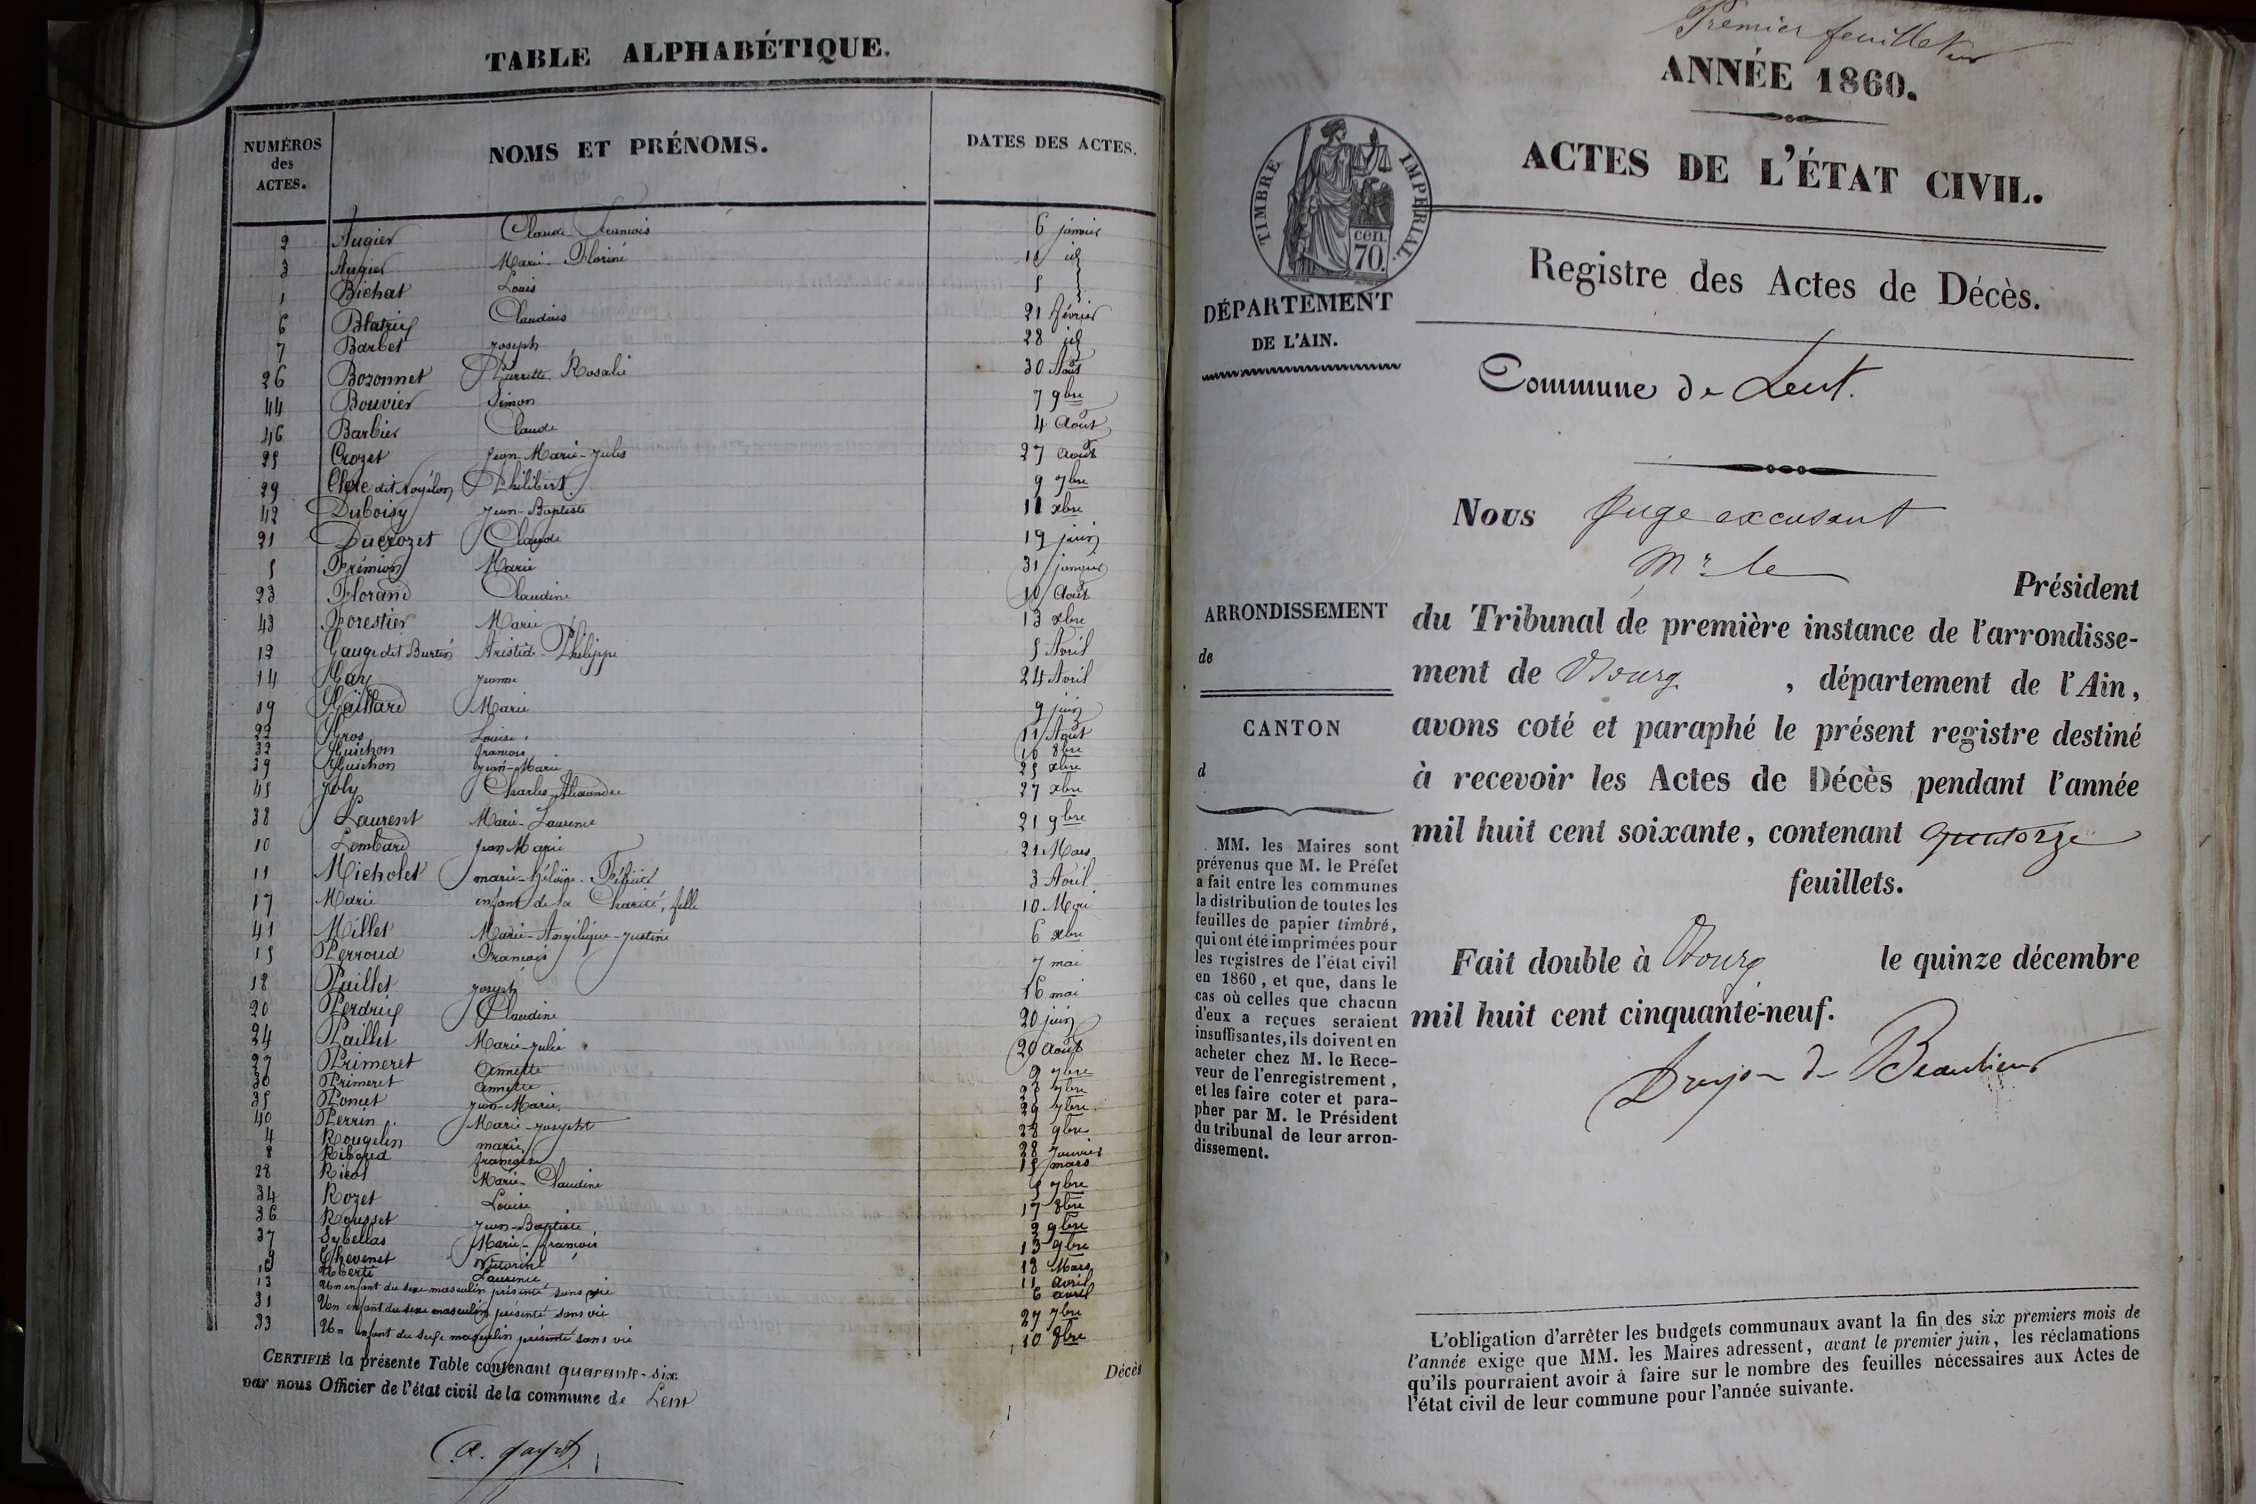 TABLE ALPHABÉTIQUE.
NUMÉROS des ACTES. NOMS ET PRÉNOMS. DATES DES ACTES.
2 Augier Claude François 6 janvier
3 Augier Marie 11 id
1 Bichat Louis 5
6 Claudius 21 février
7 Barbet Joseph 28 id
26 Bozonnet Pierrette Rosalie 30 Août
44 Bouvier Simon 7 9bre
46 Barbier Claude 4 Août
25 Crozet Jean-Marie-Jules 27 Août
29 Clerc dit Philibert 9 7bre
42 Duboisy Jean-Baptiste 11 xbre
21 Ducrozet Claude 19 juin
5 Frémion Marie 31 janvier
23 Florand Claudine 10 Août
43 Forestier Marie 13 xbre
12 Gauge dit Burtin Aristide-Philippe 5 Avril
14 Gay Jeanne 24 Avril
19 Gaillard Marie 9 juin
22 Gros Louise 11 Août
32 Guichon françois 16 8bre
39 Guichon Jean-Marie 25 xbre
45 Joly Charles Alexandre 27 xbre
38 Laurent Marie-Laurence 21 9bre
10 Lombard Jean Marie 21 Mars
11 Micholet marie-héloïse-Félicité 3 Avril
17 Marie enfant de la Charité, fille 10 Mai
41 Millet Marie-Angélique-Justine 6 xbre
15 Perroud François 7 mai
18 Paillet Joseph 16 mai
20 Perdrix Claudine 20 juin
24 Paillet Marie-Julie 20 Août
27 Primeret Annette 2 7bre
30 Primeret Annette 25 7bre
35 Poncet Jean-Marie 29 7bre
40 Perrin Marie-Josephte 28 9bre
4 Rougelin marie 28 Janvier
8 Riboud françoise 15 mars
28 Marie-Claudine 5 7bre
34 Rozet Louise 17 8bre
36 Rousset Jean-Baptiste 2 9bre
37 Sybellas Marie-françois 13 9bre
9 Chevenet Victorine 18 Mars
16 Uberti Laurence 11 avril
13 Un enfant du sexe masculin présenté sans vie 6 avril
31 Un enfant du sexe masculin présenté sans vie 27 7bre
33 Un enfant du sexe masculin présenté sans vie 10 8bre
CERTIFIÉ la présente Table contenant quarante-six Décès
par nous Officier de l'état civil de la commune de Lent
Premier feuillet
ANNÉE 1860.
ACTES DE L'ÉTAT CIVIL.
TIMBRE IMPÉRIAL.
cen.
70.
Registre des Actes de Décès.
DÉPARTEMENT
DE L'AIN.
Commune de Lent.
Nous Juge excusant
Mr le
Président
ARRONDISSEMENT
de
du Tribunal de première instance de l'arrondisse-
ment de Bourg, département de l'Ain,
avons coté et paraphé le présent registre destiné
à recevoir les Actes de Décès pendant l'année
mil huit cent soixante, contenant quatorze
feuillets.
CANTON
d
MM. les Maires sont
prévenus que M. le Préfet
a fait entre les communes
la distribution de toutes les
feuilles de papier timbré,
qui ont été imprimées pour
les registres de l'état civil
en 1860, et que, dans le
cas où celles que chacun
d'eux a reçues seraient
insuffisantes, ils doivent en
acheter chez M. le Rece-
veur de l'enregistrement,
et les faire coter et para-
pher par M. le Président
du tribunal de leur arron-
dissement.
Fait double à Bourg le quinze décembre
mil huit cent cinquante-neuf.
Drujon de Beaulieu
L'obligation d'arrêter les budgets communaux avant la fin des six premiers mois de
l'année exige que MM. les Maires adressent, avant le premier juin, les réclamations
qu'ils pourraient avoir à faire sur le nombre des feuilles nécessaires aux Actes de
l'état civil de leur commune pour l'année suivante.